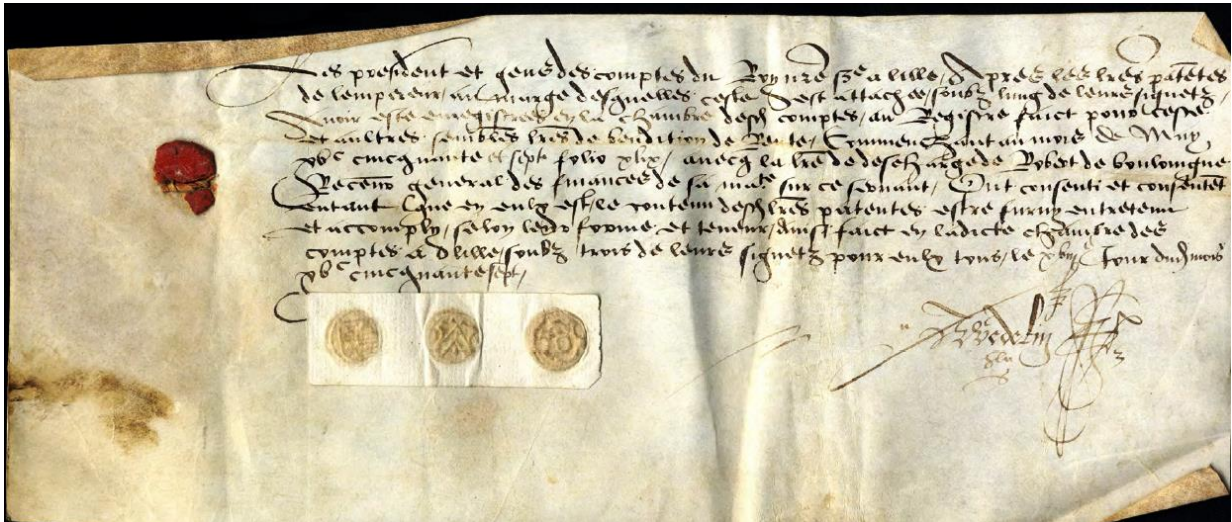 Les president et gens des comptes du Roy nre sre a lille, Aprez les lres patentes
de lempereur, au marge desquelles ceste est attachee, soubz lung de leurs signetz
Avoir este enregistrees en la chambre desd comptes, au Registre faict pour cesse
et aultres sembles lres de vendition de Rente, Commenchant au mois de May
xvc cincquante et sept folio xlix, avecq la lre de descharge de Robert de boulloingne
Recepveur general des finances de sa mate sur ce servant, Ont consenti et consentent
entant que en eulx est, le contenu desd lres patentes estre furny entretenu
et accomply, selon leur forme, et teneur, Ainsi faict en ladicte chambre des
comptes a lille, soubz trois de leurs signetz pour eulx tous, le Jour dud mois
xvc cincquante sept,